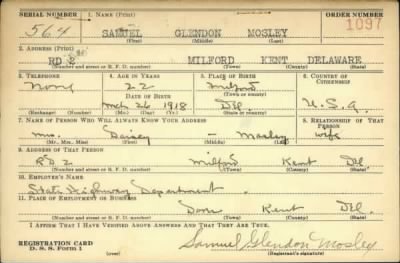 SERIAL NUMBER 1. NAME (Print) ORDER NUMBER
564 SAMUEL GLENDON MOSLEY 1097
(First) (Middle) (Last)
2. ADDRESS (Print)
RD 2 MILFORD KENT DELAWARE
(Number and street or R. F. D. number) (Town) (County) (State)
3. TELEPHONE 4. AGE IN YEARS 5. PLACE OF BIRTH 6. COUNTRY OF CITIZENSHIP
None 22 Milford
DATE OF BIRTH (Town or county)
Mch 26 1918 Del U.S.A.
(Exchange) (Number) (Mo.) (Day) (Yr.) (State or country)
7. NAME OF PERSON WHO WILL ALWAYS KNOW YOUR ADDRESS 8. RELATIONSHIP OF THAT PERSON
Mrs. Daisey — Mosley wife
(Mr., Mrs., Miss) (First) (Middle) (Last)
9. ADDRESS OF THAT PERSON
RD 2 Milford Kent Del
(Number and street or R. F. D. number) (Town) (County) (State)
10. EMPLOYER'S NAME
State Highway Department.
11. PLACE OF EMPLOYMENT OR BUSINESS
Kent Del.
(Number and street or R. F. D. number) (Town) (County) (State)
I AFFIRM THAT I HAVE VERIFIED ABOVE ANSWERS AND THAT THEY ARE TRUE.
REGISTRATION CARD
D. S. S. Form 1 (over) Samuel Glendon Mosley
(Registrant's signature)